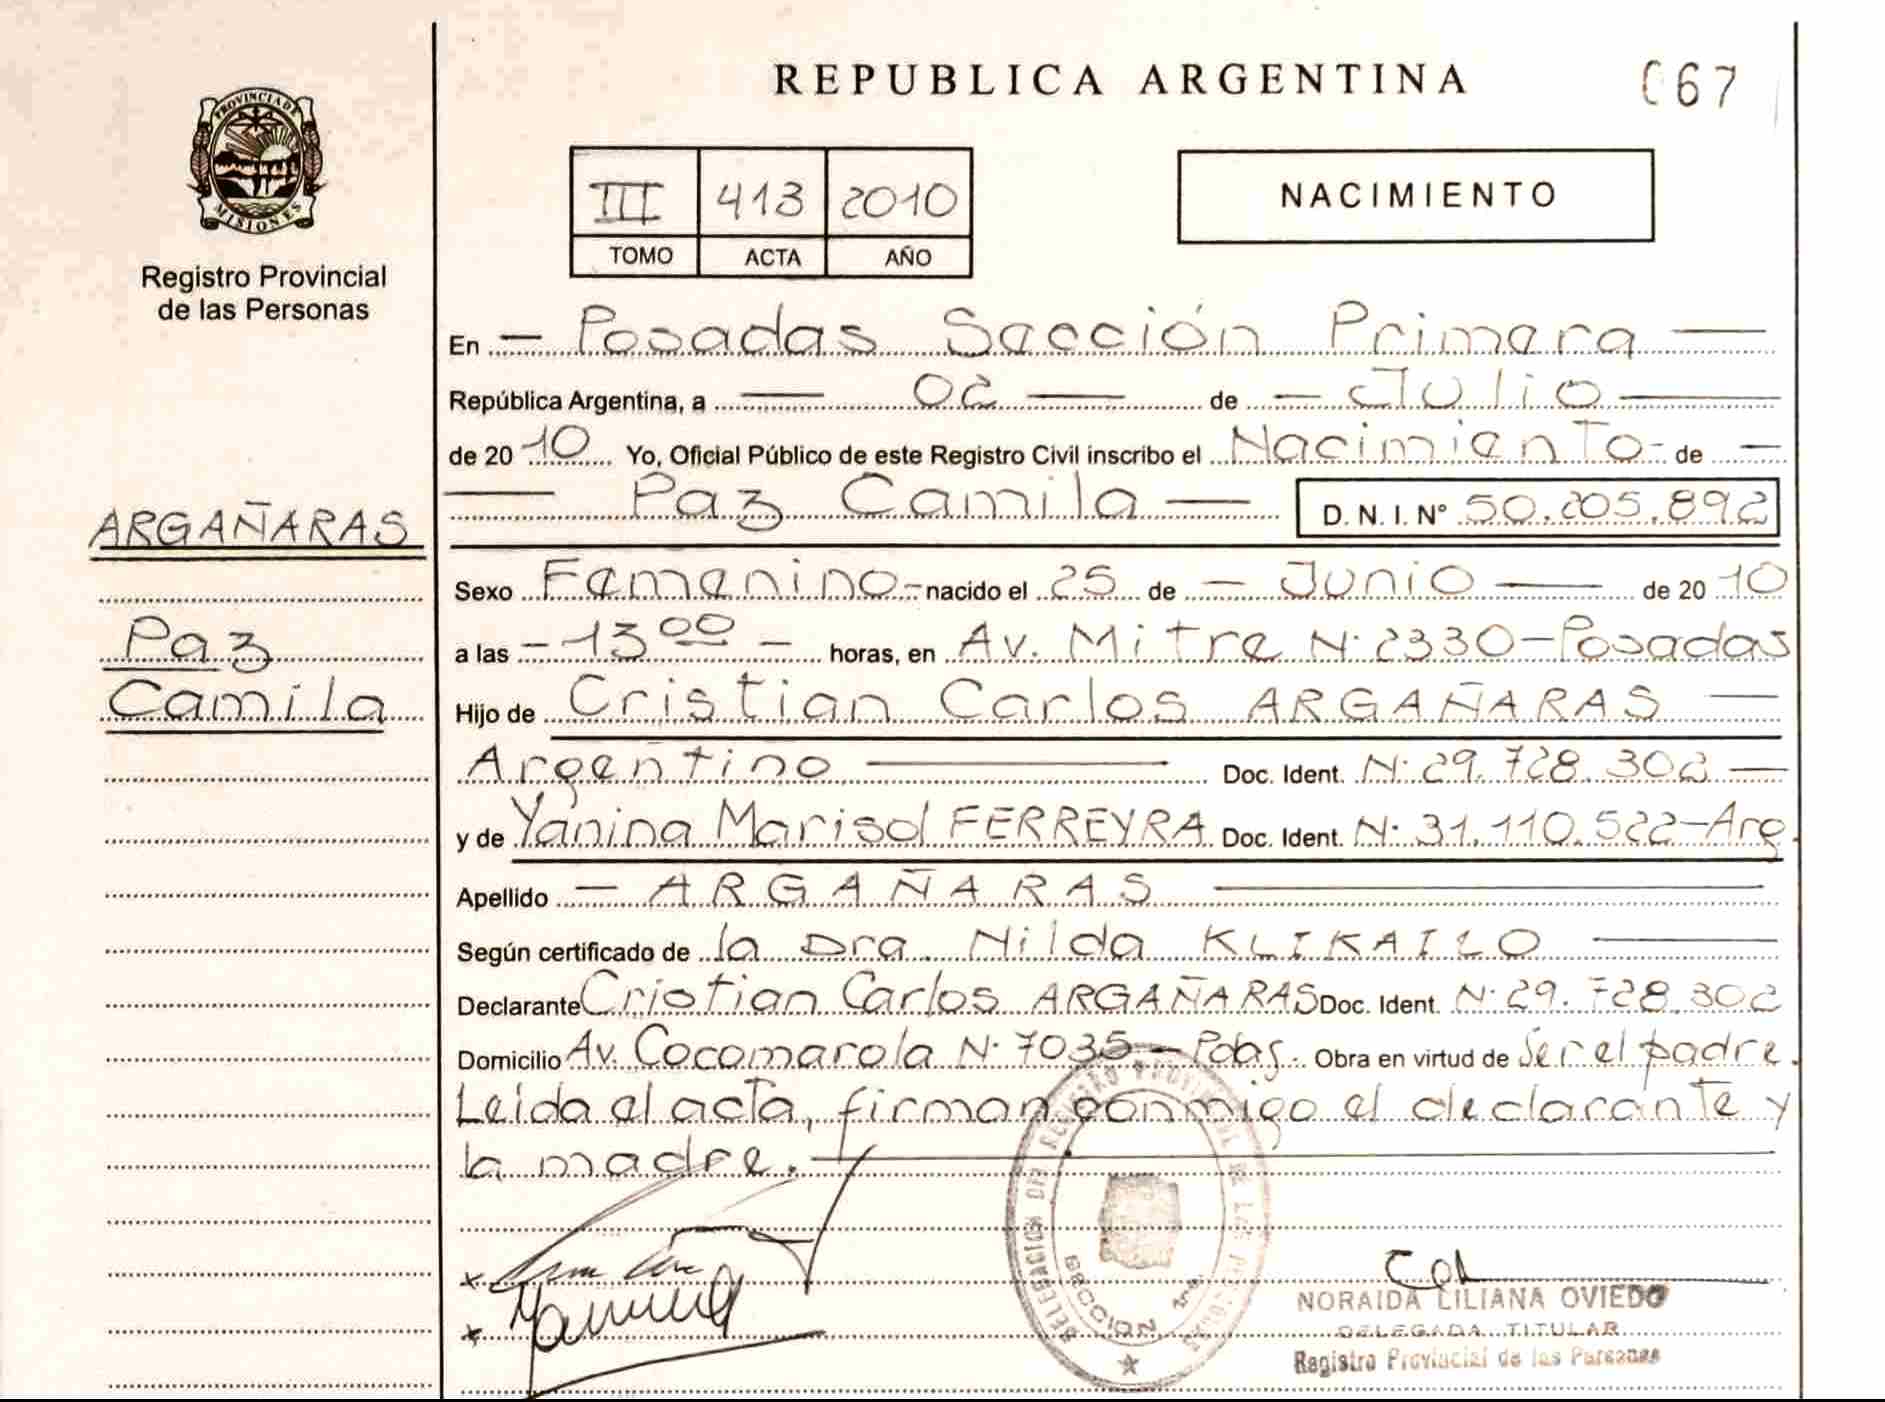 PROVINCIA DE
MISIONES
Registro Provincial
de las Personas
ARGAÑARAS
Paz
Camila
REPUBLICA ARGENTINA
067
III 413 2010
TOMO ACTA AÑO
NACIMIENTO
En — Posadas Sección Primera —
República Argentina, a — 02 — de — Julio —
de 2010 Yo, Oficial Público de este Registro Civil inscribo el Nacimiento - de —
— Paz Camila — D. N. I. N° 50.205.892
Sexo Femenino - nacido el 25 de — Junio — de 2010
a las - 13 00 - horas, en Av. Mitre N· 2330 - Posadas
Hijo de Cristian Carlos ARGAÑARAS —
Argentino — Doc. Ident. N· 29.728.302 —
y de Yanina Marisol FERREYRA Doc. Ident. N· 31.110.522 - Arg.
Apellido — ARGAÑARAS —
Según certificado de la Dra. Nilda KLIKAILO —
Declarante Cristian Carlos ARGAÑARAS Doc. Ident. N· 29.728.302
Domicilio Av. Cocomarola N· 7035 - Pdas. Obra en virtud de Ser el padre.
Leída el acta, firman conmigo el declarante y
la madre. —
DELEGACION DEL REGISTRO PROVINCIAL DE LAS PERSONAS
SECCION 1ra.
NORAIDA LILIANA OVIEDO
DELEGADA TITULAR
Registro Provincial de las Personas